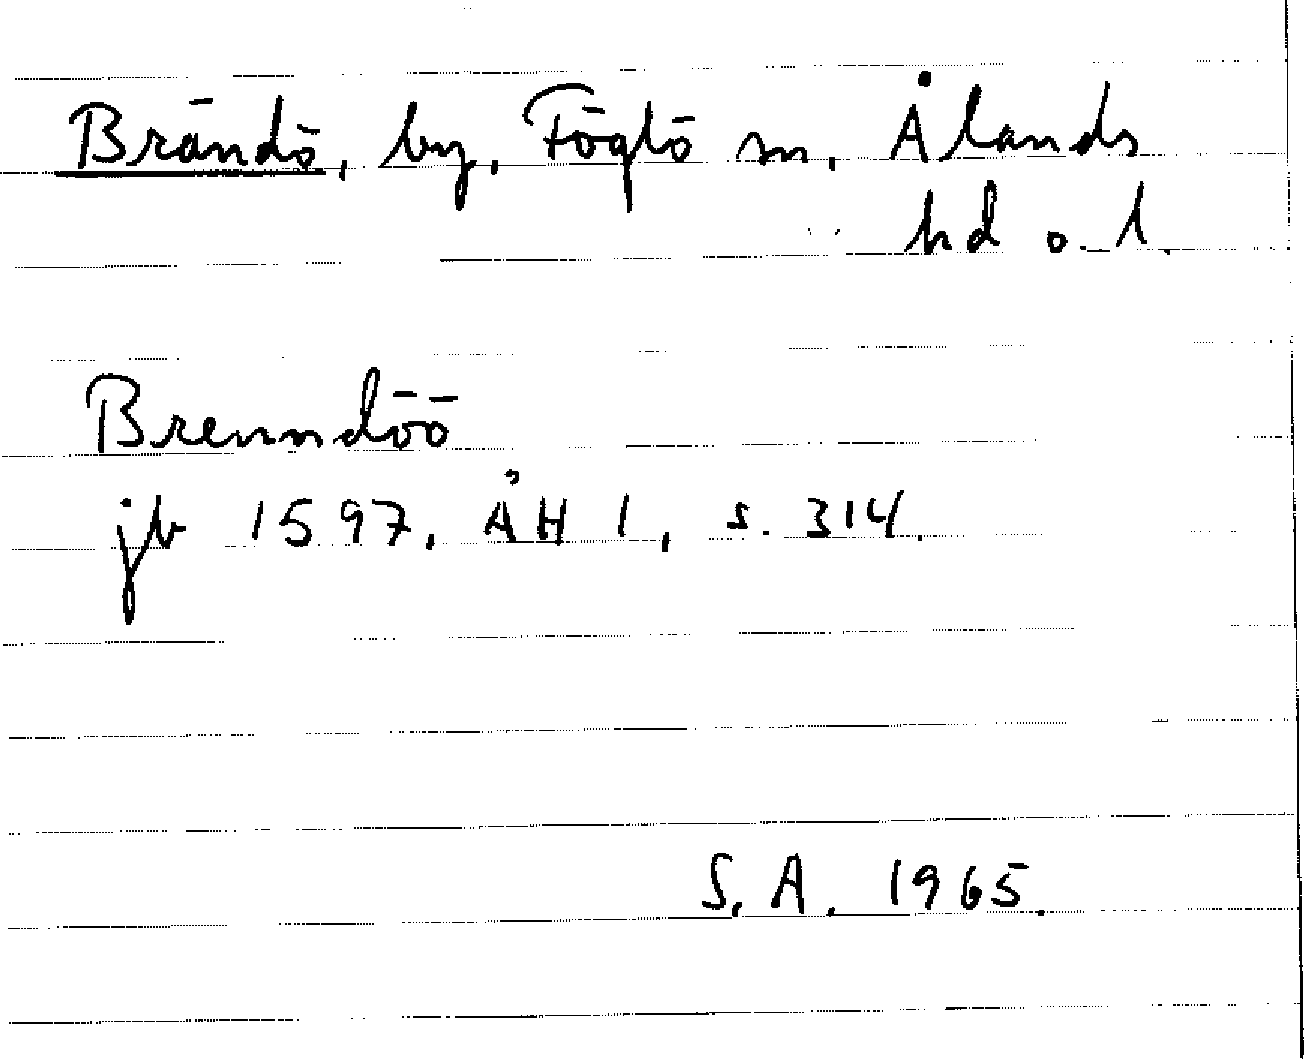 Brändö, by, Föglö sn, Ålands
hd o. l.
Brenndöö
jb 1597, ÅH 1, s. 314.
S. A. 1965.